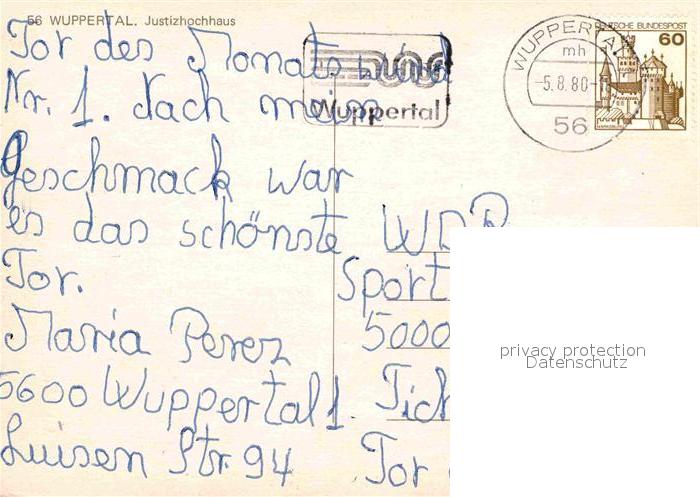 56 WUPPERTAL. Justizhochhaus
Tor des Monats wird
Nr. 1. Nach meim
Geschmack war
es das schönste
Tor.
Maria Perez
5600 Wuppertal 1.
Luisen Str. 94
Wuppertal
WUPPERTAL
mh
-5.8.80-
56
DEUTSCHE BUNDESPOST
60
WDR
Sport
5000
Tor
privacy protection
Datenschutz